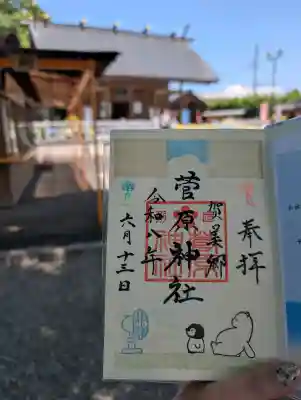 奉拝
賀美郷
菅原神社
令和八年
六月十三日